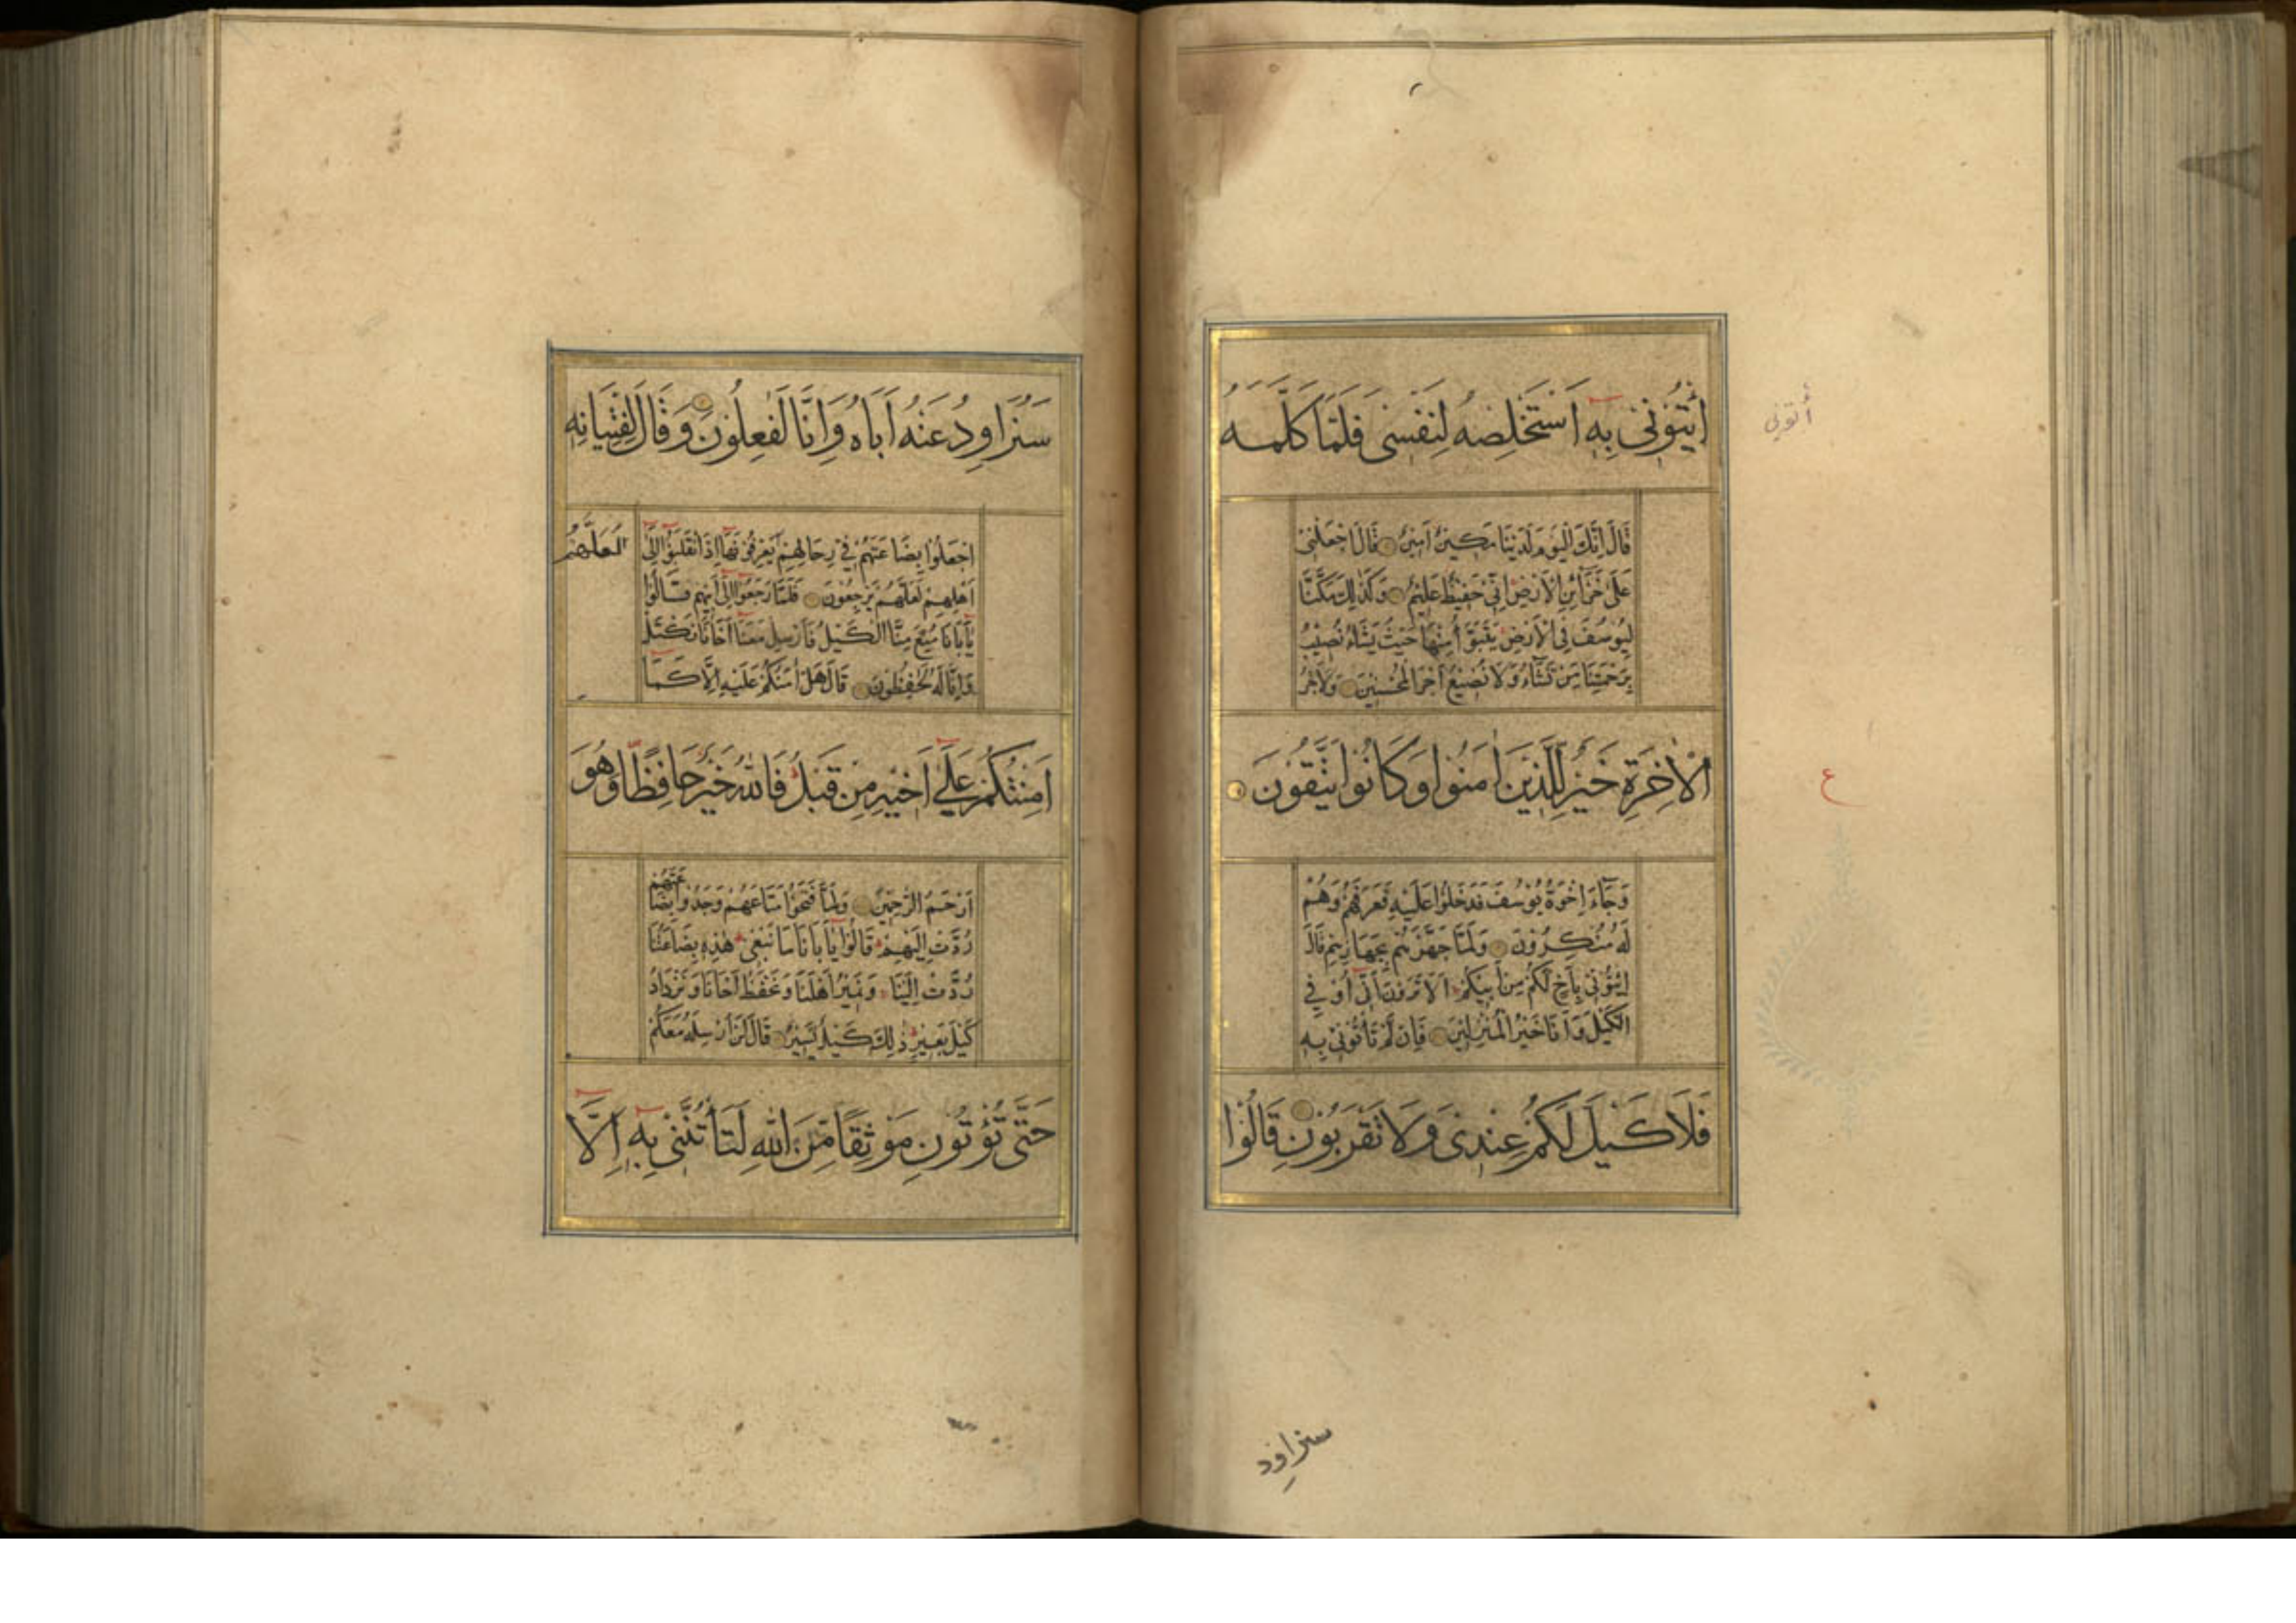 ائْتُونِي بِهِ أَسْتَخْلِصْهُ لِنَفْسِي فَلَمَّا كَلَّمَهُ
أتوني
قَالَ إِنَّكَ الْيَوْمَ لَدَيْنَا مَكِينٌ أَمِينٌ قَالَ اجْعَلْنِي
عَلَى خَزَآئِنِ الْأَرْضِ إِنِّي حَفِيظٌ عَلِيمٌ وَكَذَلِكَ مَكَّنَّا
لِيُوسُفَ فِي الْأَرْضِ يَتَبَوَّأُ مِنْهَا حَيْثُ يَشَاءُ نُصِيبُ
بِرَحْمَتِنَا مَنْ نَشَاءُ وَلَا نُضِيعُ أَجْرَ الْمُحْسِنِينَ وَلَأَجْرُ
الْآخِرَةِ خَيْرٌ لِلَّذِينَ اٰمَنُوا وَكَانُوا يَتَّقُونَ
ع
وَجَاءَ إِخْوَةُ يُوسُفَ فَدَخَلُوا عَلَيْهِ فَعَرَفَهُمْ وَهُمْ
لَهُ مُنْكِرُونَ وَلَمَّا جَهَّزَهُمْ بِجَهَازِهِمْ قَالَ
ائْتُونِي بِأَخٍ لَكُمْ مِنْ أَبِيكُمْ أَلَا تَرَوْنَ أَنِّي أُوفِي
الْكَيْلَ وَأَنَا خَيْرُ الْمُنْزِلِينَ فَإِنْ لَمْ تَأْتُونِي بِهِ
فَلَا كَيْلَ لَكُمْ عِنْدِي وَلَا تَقْرَبُونِ قَالُوا
سنراود
سَنُرَاوِدُ عَنْهُ أَبَاهُ وَإِنَّا لَفٰعِلُونَ وَقَالَ لِفِتْيَانِهِ
اجْعَلُوا بِضَاعَتَهُمْ فِي رِحَالِهِمْ يَعْرِفُونَهَا إِذَا انْقَلَبُوا إِلَى
لَعَلَّهُمْ
أَهْلِهِمْ لَعَلَّهُمْ يَرْجِعُونَ فَلَمَّا رَجَعُوا إِلَى أَبِيهِمْ قَالُوا
يَا أَبَانَا مُنِعَ مِنَّا الْكَيْلُ فَأَرْسِلْ مَعَنَا أَخَانَا نَكْتَلْ
وَإِنَّا لَهُ لَحٰفِظُونَ قَالَ هَلْ اٰمَنُكُمْ عَلَيْهِ إِلَّا كَمَا
أَمِنْتُكُمْ عَلَى أَخِيهِ مِنْ قَبْلُ فَاللهُ خَيْرٌ حَافِظًا وَهُوَ
أَرْحَمُ الرّٰحِمِينَ وَلَمَّا فَتَحُوا مَتَاعَهُمْ وَجَدُوا بِضَاعَتَهُمْ
رُدَّتْ إِلَيْهِمْ قَالُوا يَا أَبَانَا مَا نَبْغِي هٰذِهِ بِضَاعَتُنَا
رُدَّتْ إِلَيْنَا وَنَمِيرُ أَهْلَنَا وَنَحْفَظُ أَخَانَا وَنَزْدَادُ
كَيْلَ بَعِيرٍ ذٰلِكَ كَيْلٌ يَسِيرٌ قَالَ لَنْ أُرْسِلَهُ مَعَكُمْ
حَتَّى تُؤْتُونِ مَوْثِقًا مِنَ اللهِ لَتَأْتُنَّنِي بِهِ إِلَّا